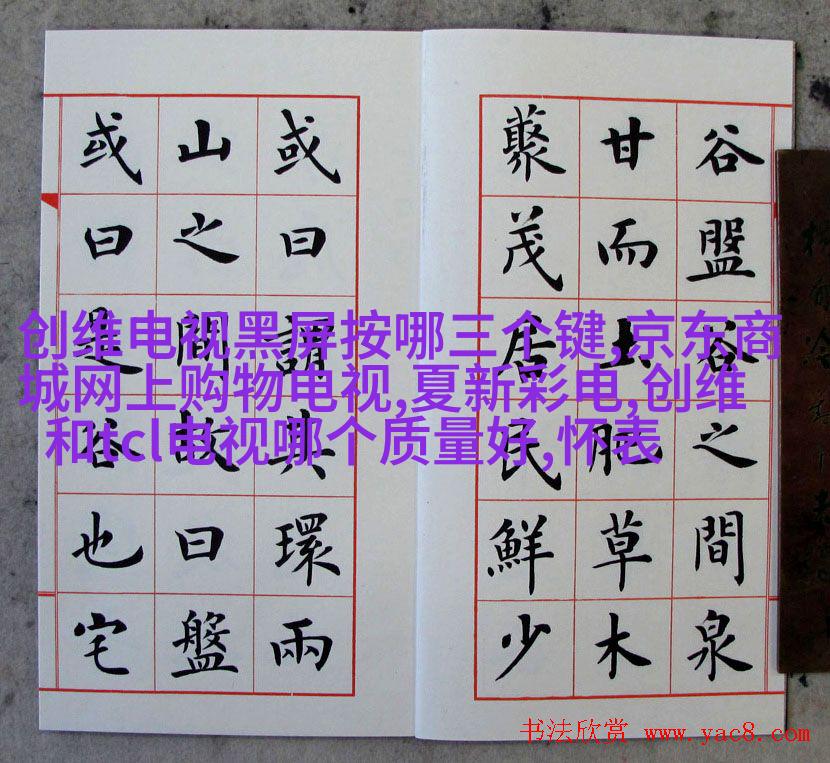 谷盤谷之間泉
甘而土肥草木
藂茂居民鮮少
或曰謂其環兩
山之間故曰盤
或曰是谷也宅
创维电视黑屏按哪三个键,京东商
城网上购物电视,夏新彩电,创维
和tcl电视哪个质量好,怀表
书法欣赏 www.yac8.com